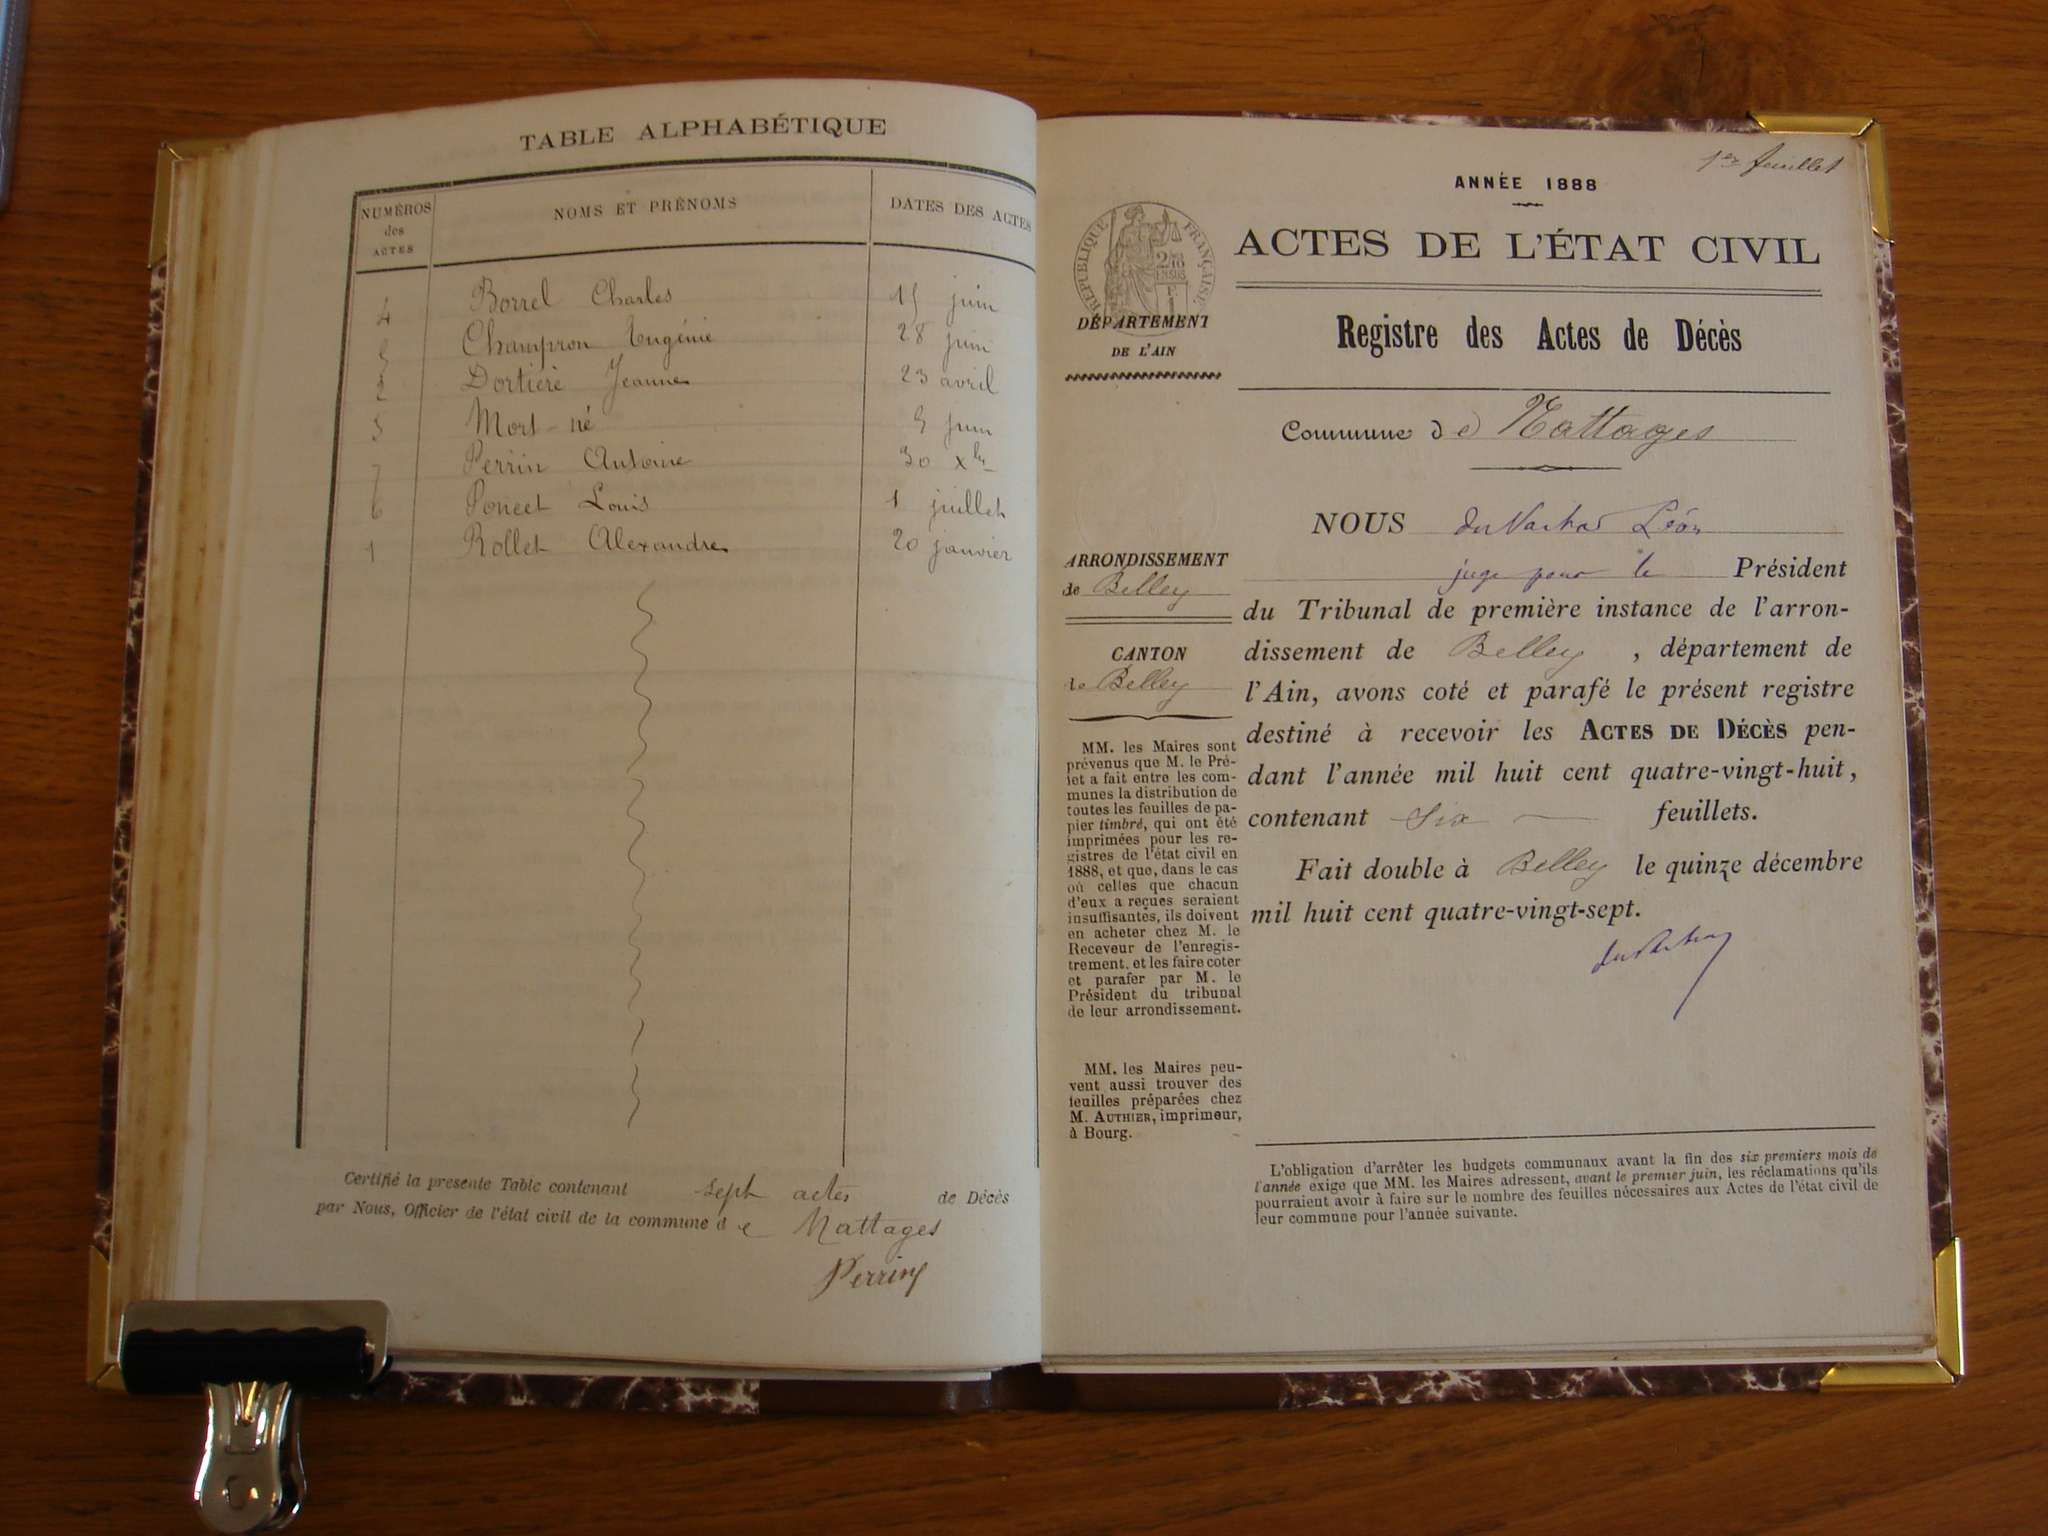 TABLE ALPHABÉTIQUE
NUMÉROS des ACTES
NOMS ET PRÉNOMS
DATES DES ACTES
4 Borrel Charles 15 juin
5 Champron Eugénie 28 juin
2 Dortière Jeanne 23 avril
3 Mort-né 5 juin
7 Perrin Antoine 30 xbre
6 Poncet Louis 1 juillet
1 Rollet Alexandre 20 janvier
Certifié la presente Table contenant sept actes de Décès
par Nous, Officier de l'état civil de la commune de Nattages
Perrin
1er feuillet
ANNÉE 1888
ACTES DE L'ÉTAT CIVIL
Registre des Actes de Décès
RÉPUBLIQUE FRANÇAISE
DÉPARTEMENT
DE L'AIN
Commune de Nattages
NOUS Léon
juge pour le Président
du Tribunal de première instance de l'arron-
dissement de Belley, département de
l'Ain, avons coté et parafé le présent registre
destiné à recevoir les ACTES DE DÉCÈS pen-
dant l'année mil huit cent quatre-vingt-huit,
contenant six feuillets.
Fait double à Belley le quinze décembre
mil huit cent quatre-vingt-sept.
ARRONDISSEMENT
de Belley
CANTON
de Belley
MM. les Maires sont
prévenus que M. le Pré-
fet a fait entre les com-
munes la distribution de
toutes les feuilles de pa-
pier timbré, qui ont été
imprimées pour les re-
gistres de l'état civil en
1888, et que, dans le cas
où celles que chacun
d'eux a reçues seraient
insuffisantes, ils doivent
en acheter chez M. le
Receveur de l'enregis-
trement, et les faire coter
et parafer par M. le
Président du tribunal
de leur arrondissement.
MM. les Maires peu-
vent aussi trouver des
feuilles préparées chez
M. AUTHIER, imprimeur,
à Bourg.
L'obligation d'arrêter les budgets communaux avant la fin des six premiers mois de
l'année exige que MM. les Maires adressent, avant le premier juin, les réclamations qu'ils
pourraient avoir à faire sur le nombre des feuilles nécessaires aux Actes de l'état civil de
leur commune pour l'année suivante.